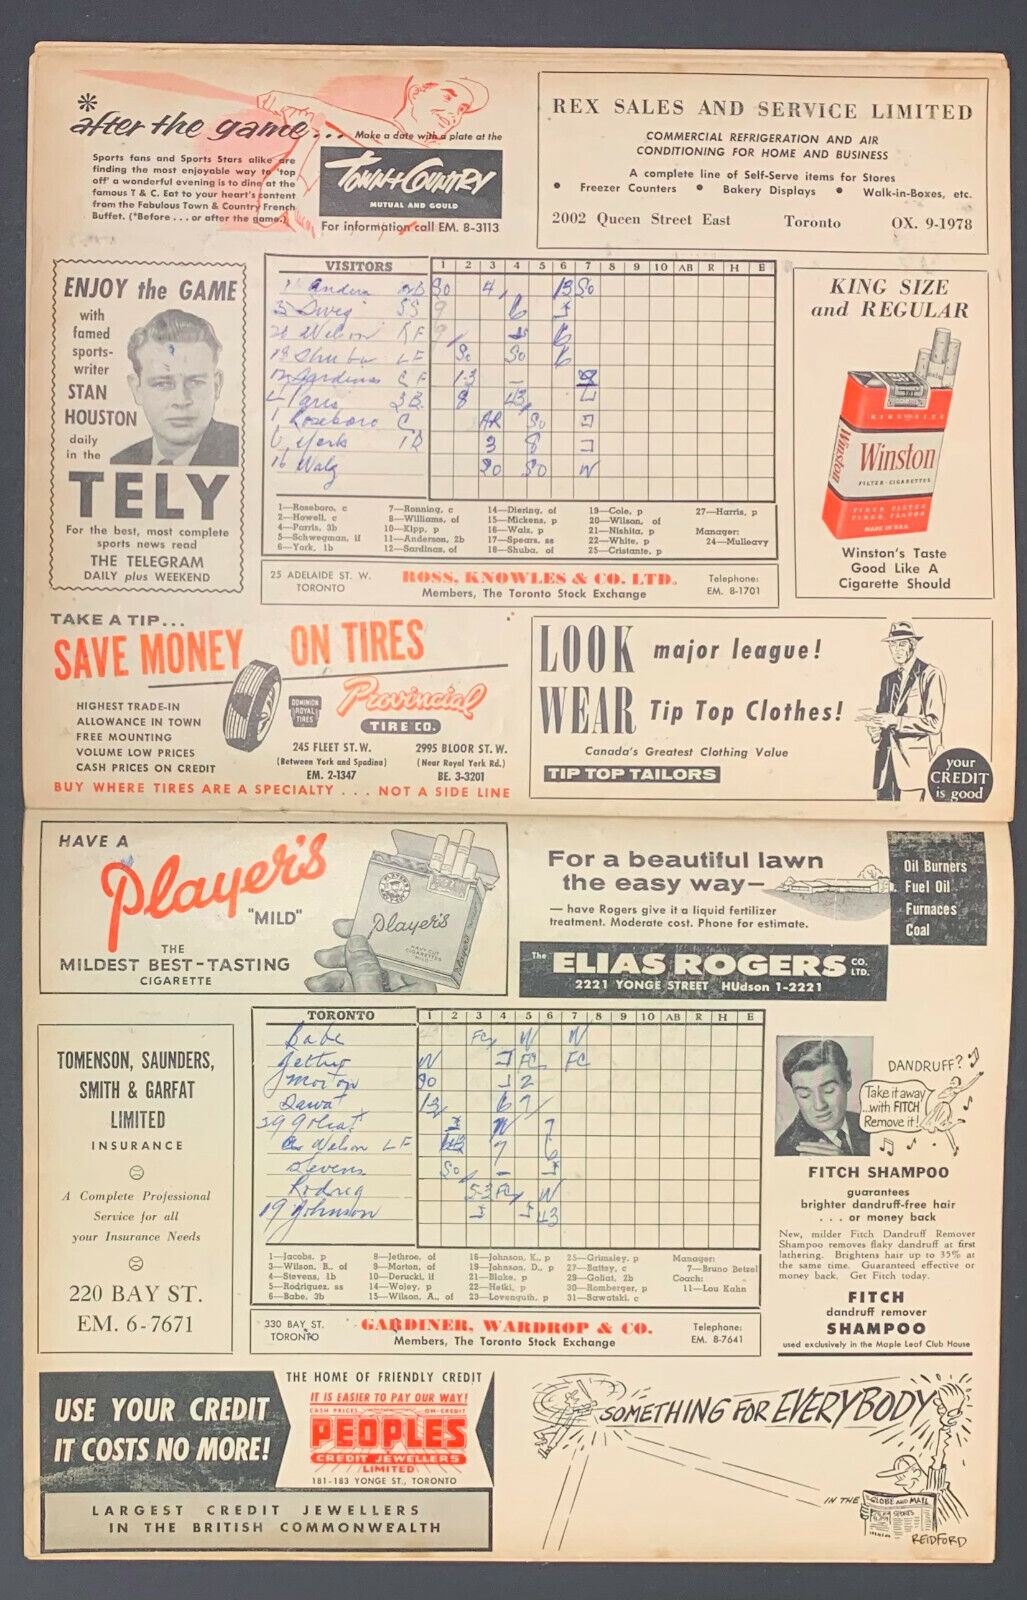 *
after the game...
Make a date with a plate at the
Sports fans and Sports Stars alike are
finding the most enjoyable way to 'top
off' a wonderful evening is to dine at the
famous T & C. Eat to your heart's content
from the Fabulous Town & Country French
Buffet. (*Before . . . or after the game.)
TOWN + COUNTRY
MUTUAL AND GOULD
For information call EM. 8-3113
REX SALES AND SERVICE LIMITED
COMMERCIAL REFRIGERATION AND AIR
CONDITIONING FOR HOME AND BUSINESS
A complete line of Self-Serve items for Stores
• Freezer Counters • Bakery Displays • Walk-in-Boxes, etc.
2002 Queen Street East Toronto OX. 9-1978
ENJOY the GAME
with
famed
sports-
writer
STAN
HOUSTON
daily
in the
TELY
For the best, most complete
sports news read
THE TELEGRAM
DAILY plus WEEKEND
VISITORS 1 2 3 4 5 6 7 8 9 10 AB R H E
SO 4 13 SO
SS 9 6
RF 9 6
18 Shuba LF SO SO 6
CF 1-3
4 Paris 3B 8 43
Roseboro C SO
York 3 8
16 Walz SO SO W
1—Roseboro, c
2—Howell, c
4—Parris, 3b
5—Schwegman, if
6—York, 1b
7—Ronning, c
8—Williams, of
10—Kipp, p
11—Anderson, 2b
12—Sardinas, of
14—Diering, of
15—Mickens, p
16—Walz, p
17—Spears, ss
18—Shuba, of
19—Cole, p
20—Wilson, of
21—Nishita, p
22—White, p
25—Cristante, p
27—Harris, p
Manager:
24—Mulleavy
25 ADELAIDE ST. W.
TORONTO
ROSS, KNOWLES & CO. LTD.
Members, The Toronto Stock Exchange
Telephone:
EM. 8-1701
KING SIZE
and REGULAR
KING SIZE
Winston
Winston
FILTER-CIGARETTES
FINER FILTER
FINER FLAVOR
MADE IN U.S.A.
Winston's Taste
Good Like A
Cigarette Should
TAKE A TIP...
SAVE MONEY ON TIRES
HIGHEST TRADE-IN
ALLOWANCE IN TOWN
FREE MOUNTING
VOLUME LOW PRICES
CASH PRICES ON CREDIT
DOMINION
ROYAL
TIRES
Provincial
TIRE CO.
245 FLEET ST. W.
(Between York and Spadina)
EM. 2-1347
2995 BLOOR ST. W.
(Near Royal York Rd.)
BE. 3-3201
BUY WHERE TIRES ARE A SPECIALTY . . . NOT A SIDE LINE
LOOK major league!
WEAR Tip Top Clothes!
Canada's Greatest Clothing Value
TIP TOP TAILORS
your
CREDIT
is good
HAVE A
Player's
"MILD"
THE
MILDEST BEST-TASTING
CIGARETTE
Player's
NAVY CUT
CIGARETTES
MILD
For a beautiful lawn
the easy way—
— have Rogers give it a liquid fertilizer
treatment. Moderate cost. Phone for estimate.
Oil Burners
Fuel Oil
Furnaces
Coal
The ELIAS ROGERS CO. LTD.
2221 YONGE STREET HUdson 1-2221
TOMENSON, SAUNDERS,
SMITH & GARFAT
LIMITED
INSURANCE
A Complete Professional
Service for all
your Insurance Needs
220 BAY ST.
EM. 6-7671
TORONTO 1 2 3 4 5 6 7 8 9 10 AB R H E
Babe FC W W
Jethro W FC FC
Morton SO 2
Sawat 13 6 7
29 Goliat W 7
Wilson LF 7 6
Stevens SO
Rodrig 5-3 FC W
19 Johnson 43
1—Jacobs, p
3—Wilson, B., of
4—Stevens, 1b
5—Rodriguez, ss
6—Babe, 3b
8—Jethroe, of
9—Morton, of
10—Derucki, if
14—Woley, p
15—Wilson, A., of
16—Johnson, K., p
19—Johnson, D., p
21—Blake, p
22—Hetki, p
23—Lovenguth, p
25—Grimsley, p
27—Battey, c
29—Goliat, 2b
30—Romberger, p
31—Sawatski, c
Manager:
7—Bruno Betzel
Coach:
11—Lou Kahn
330 BAY ST.
TORONTO
GARDINER, WARDROP & CO.
Members, The Toronto Stock Exchange
Telephone:
EM. 8-7641
DANDRUFF?
Take it away
...with FITCH
Remove it!
FITCH SHAMPOO
guarantees
brighter dandruff-free hair
. . . or money back
New, milder Fitch Dandruff Remover
Shampoo removes flaky dandruff at first
lathering. Brightens hair up to 35% at
the same time. Guaranteed effective or
money back. Get Fitch today.
FITCH
dandruff remover
SHAMPOO
used exclusively in the Maple Leaf Club House
USE YOUR CREDIT
IT COSTS NO MORE!
THE HOME OF FRIENDLY CREDIT
IT IS EASIER TO PAY OUR WAY!
CASH PRICES ON CREDIT
PEOPLES
CREDIT JEWELLERS
LIMITED
181-183 YONGE ST., TORONTO
LARGEST CREDIT JEWELLERS
IN THE BRITISH COMMONWEALTH
SOMETHING FOR EVERYBODY
IN THE
GLOBE AND MAIL
SPORTS
REIDFORD